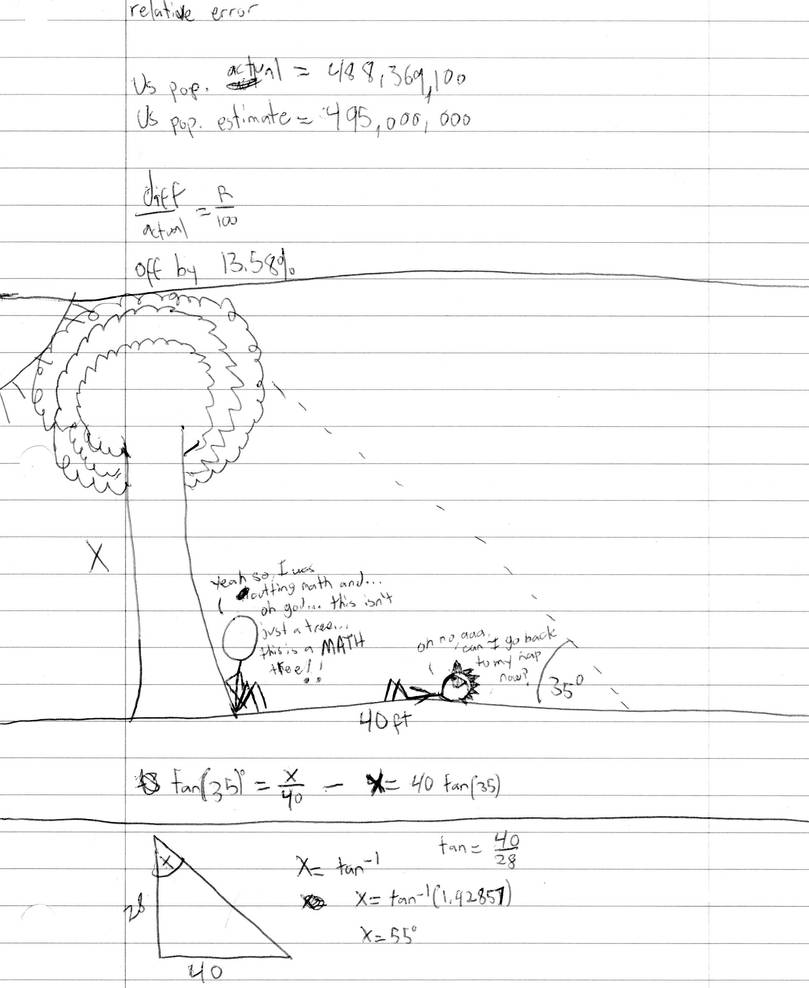 relative error
Us pop. actual = 488,369,100
Us pop. estimate = 495,000,000
diff/actual = R/100
off by 13.58%
X
yeah so, I was
cutting math and...
oh god... this isn't
just a tree...
this is a MATH
tree!!
oh no, aaa.
can I go back
to my nap
now?
35°
40ft
tan(35)° = x/40 — x = 40 tan(35)
x
28
40
x = tan⁻¹
tan = 40/28
x = tan⁻¹(1.42857)
x = 55°